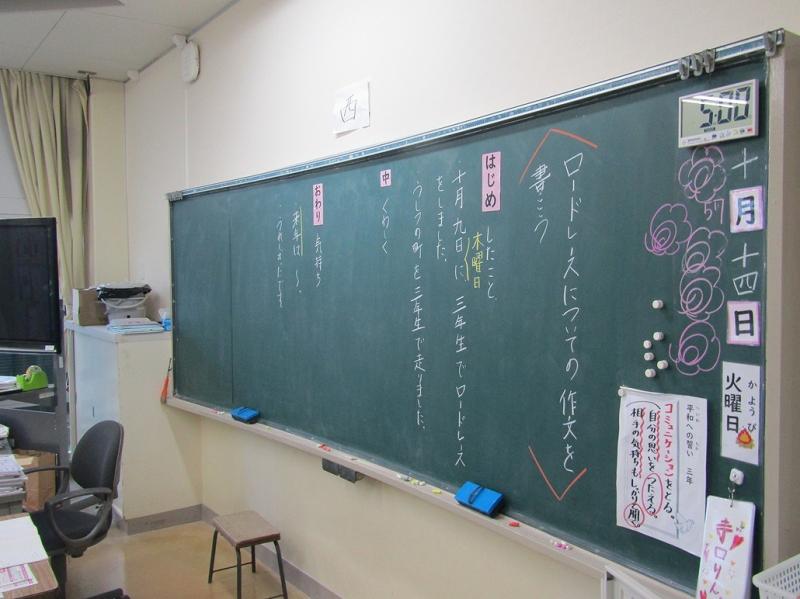 西
5:00
十月十四日
火曜日
かようび
ロードレースについての作文を
書こう
はじめ
したこと
木曜日
十月九日に、三年生でロードレス
をしました。
うしつの町を三年生で走りました。
中
くわしく
おわり
気持ち
来年は〜。
うれしかったです
平和への誓い 三年
コミュニケーションをとる。
自分の思いをつたえる。
相手の気持ちもしっかり聞く。
寺口りん